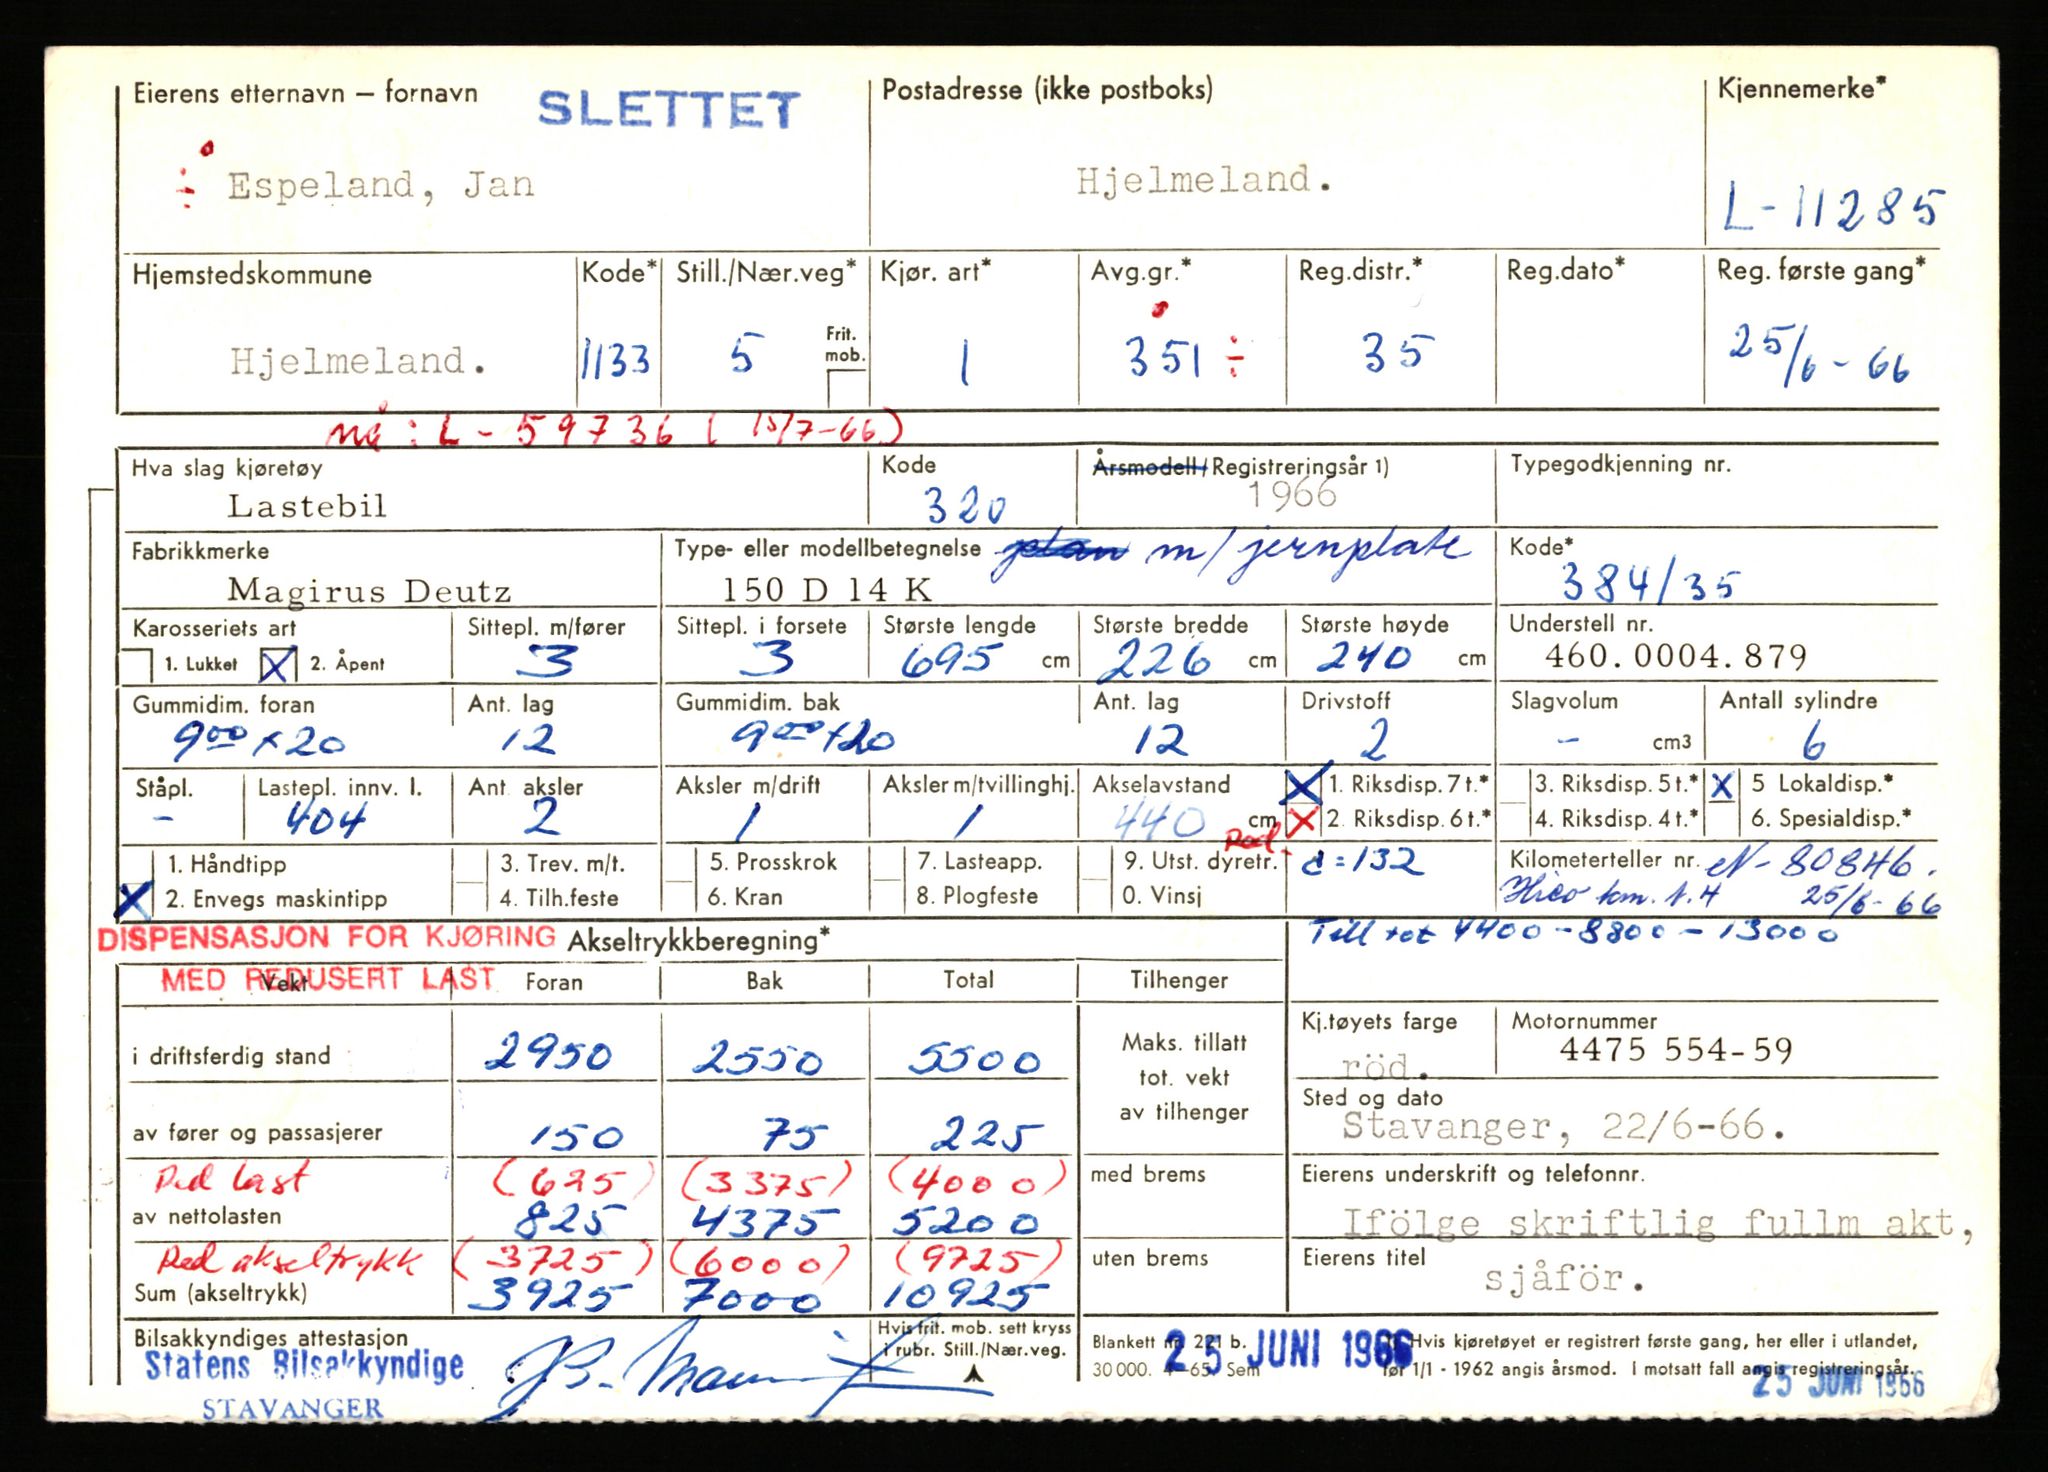 Eierens etternavn – fornavn SLETTET Postadresse (ikke postboks) Kjennemerke*
÷ Espeland, Jan Hjelmeland. L-11285
Hjemstedskommune Kode* Still./Nær.veg* Kjør. art* Avg.gr.* Reg.distr.* Reg.dato* Reg. første gang*
Hjelmeland. 1133 5 Frit. mob. 1 351 ÷ 35 25/6-66
nå: L-59736 (15/7-66)
Hva slag kjøretøy Kode Årsmodell/Registreringsår 1) Typegodkjenning nr.
Lastebil 320 1966
Fabrikkmerke Type- eller modellbetegnelse plan m/jernplate Kode*
Magirus Deutz 150 D 14 K 384/35
Karosseriets art Sittepl. m/fører Sittepl. i forsete Største lengde Største bredde Største høyde Understell nr.
1. Lukket X 2. Åpent 3 3 695 cm 226 cm 240 cm 460.0004.879
Gummidim. foran Ant. lag Gummidim. bak Ant. lag Drivstoff Slagvolum Antall sylindre
9⁰⁰ x 20 12 9⁰⁰ x 20 12 2 – cm3 6
Ståpl. Lastepl. innv. l. Ant. aksler Aksler m/drift Aksler m/tvillinghj. Akselavstand X 1. Riksdisp. 7 t.* 3. Riksdisp. 5 t.* X 5 Lokaldisp.*
– 404 2 1 1 440 cm X 2. Riksdisp. 6 t.* 4. Riksdisp. 4 t.* 6. Spesialdisp.*
Red.
1. Håndtipp 3. Trev. m/t. 5. Prosskrok 7. Lasteapp. 9. Utst. dyretr. c=132 Kilometerteller nr. N-80846.
X 2. Envegs maskintipp 4. Tilh.feste 6. Kran 8. Plogfeste 0. Vinsj Hico km. t. 4 25/6-66
DISPENSASJON FOR KJØRING Akseltrykkberegning* Till tot 4400-8800-13000
MED REDUSERT LAST
Vekt Foran Bak Total Tilhenger
i driftsferdig stand 2950 2550 5500 Maks. tillatt tot. vekt av tilhenger Kj.tøyets farge Motornummer
röd. 4475 554-59
av fører og passasjerer 150 75 225 Sted og dato
Stavanger, 22/6-66.
Red last (625) (3375) (4000) med brems Eierens underskrift og telefonnr.
av nettolasten 825 4375 5200 Ifölge skriftlig fullm akt,
Red akseltrykk (3725) (6000) (9725) uten brems Eierens titel
Sum (akseltrykk) 3925 7000 10925 sjåför.
Bilsakkyndiges attestasjon Hvis frit. mob. sett kryss i rubr. Still./Nær.veg. Blankett nr. 221 b. 1) Hvis kjøretøyet er registrert første gang, her eller i utlandet,
Statens Bilsakkyndige 25 JUNI 1966 30 000. 4-65. Sem før 1/1 - 1962 angis årsmod. I motsatt fall angis registreringsår.
STAVANGER 25 JUNI 1966